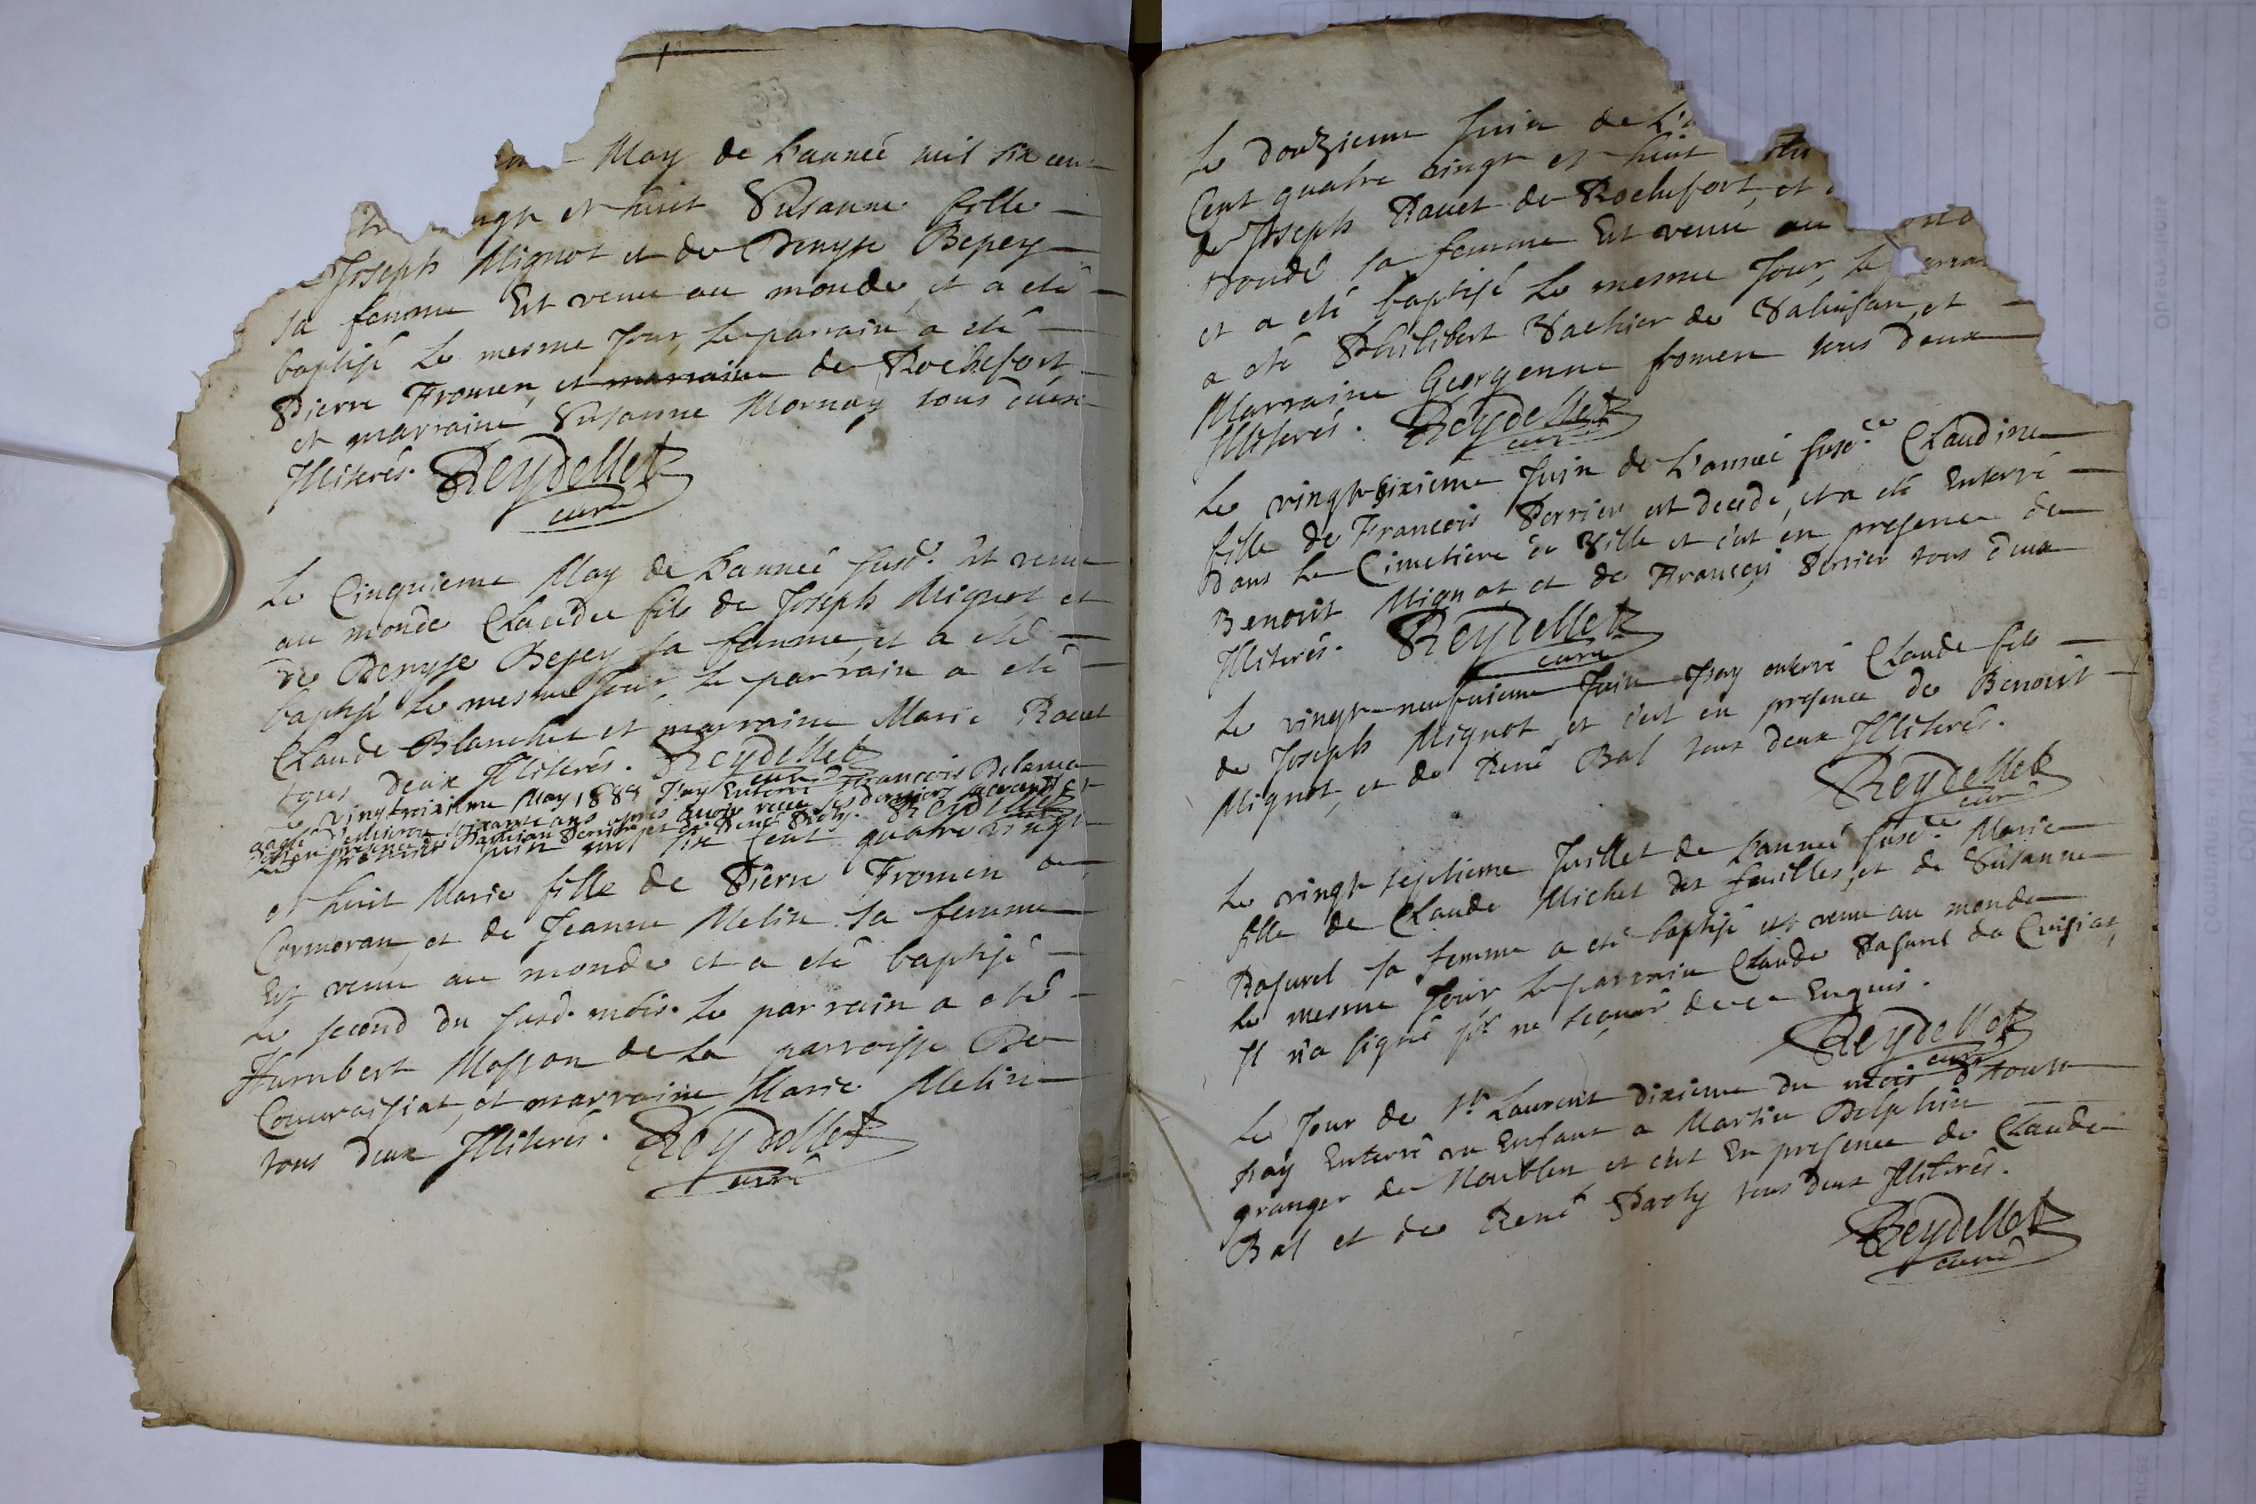 May de L'année mil six cent
ingt et huit Susanne fille
Joseph Mignot et de Denyse Bepey
sa femme Est venu au monde, et a eté
baptisé le mesme Jour, le parrain a eté
Pierre Fromen, et marraine de Rochefort
et marraine Susanne Mornay tous deux
Illiterés. Reydellet
curé
Le Cinquieme May de L'année susd. Est venu
au monde Claude fils de Joseph Mignot et
de Denyse Bepey sa femme, et a eté
baptisé le mesme Jour, le parrain a eté
Claude Blanchet et marraine Marie Rauet
tous deux Illiterés. Reydellet
curé
Le vingtroisieme May 1688 J'ay Enterré Francois
aagé d'environ soixante ans apres avoir receu ses derniers sacrements
en presence de Perrier, et de René
Le premier Juin mil six Cent quatre vingt
et huit Marie fille de Pierre Fromen de
Cormoran, et de Jeanne Melin sa femme
Est venu au monde et a eté baptisé
le second du susd. mois. le parrain a eté
Humbert Masson de la parroisse De
Courvaissiat, et marraine Marie Melin
tous deux Illiterés. Reydellet
curé
Le douzieme Juin de L'
Cent quatre vingt et huit
de Joseph Rauet de Rochefort, et
sa femme Est venu au
et a eté baptisé le mesme Jour, le
a eté Philibert Vachier de et
Marraine Georgenne fromen tous deux
Illiterés. Reydellet
curé
Le vingt-sixieme Juin de L'année susd.ce Claudine
fille de Francois Perrier est decedé, et a eté Enterré
Dans le Cimetiere de Ville et c'est en presence de
Benoit Mignot, et de Francois Perrier tous deux
Illiterés. Reydellet
curé
Le vingt-neufuieme Juin J'ay enterré Claude fils
de Joseph Mignot, et c'est en presence de Benoit
Mignot, et de René Bal tous deux Illiterés.
Reydellet
curé
Le vingt septieme Juillet de L'année susd.ce Marie
fille de Claude Michel des feuilles, et de Susanne
Rasurel sa femme a eté baptisé est venu au monde
le mesme Jour, le parrain Claude Rasurel de Cuisiat,
Il n'a signé pr ne sçauoir de ce Enquis.
Reydellet
curé
Le Jour de St Laurent dixieme du mois d'Aoust
J'ay Enterré vn Enfant a Martin Delphin
granger de Noublen et c'est En presence de Claude
Bal et de René tous deux Illiterés.
Reydellet
curé